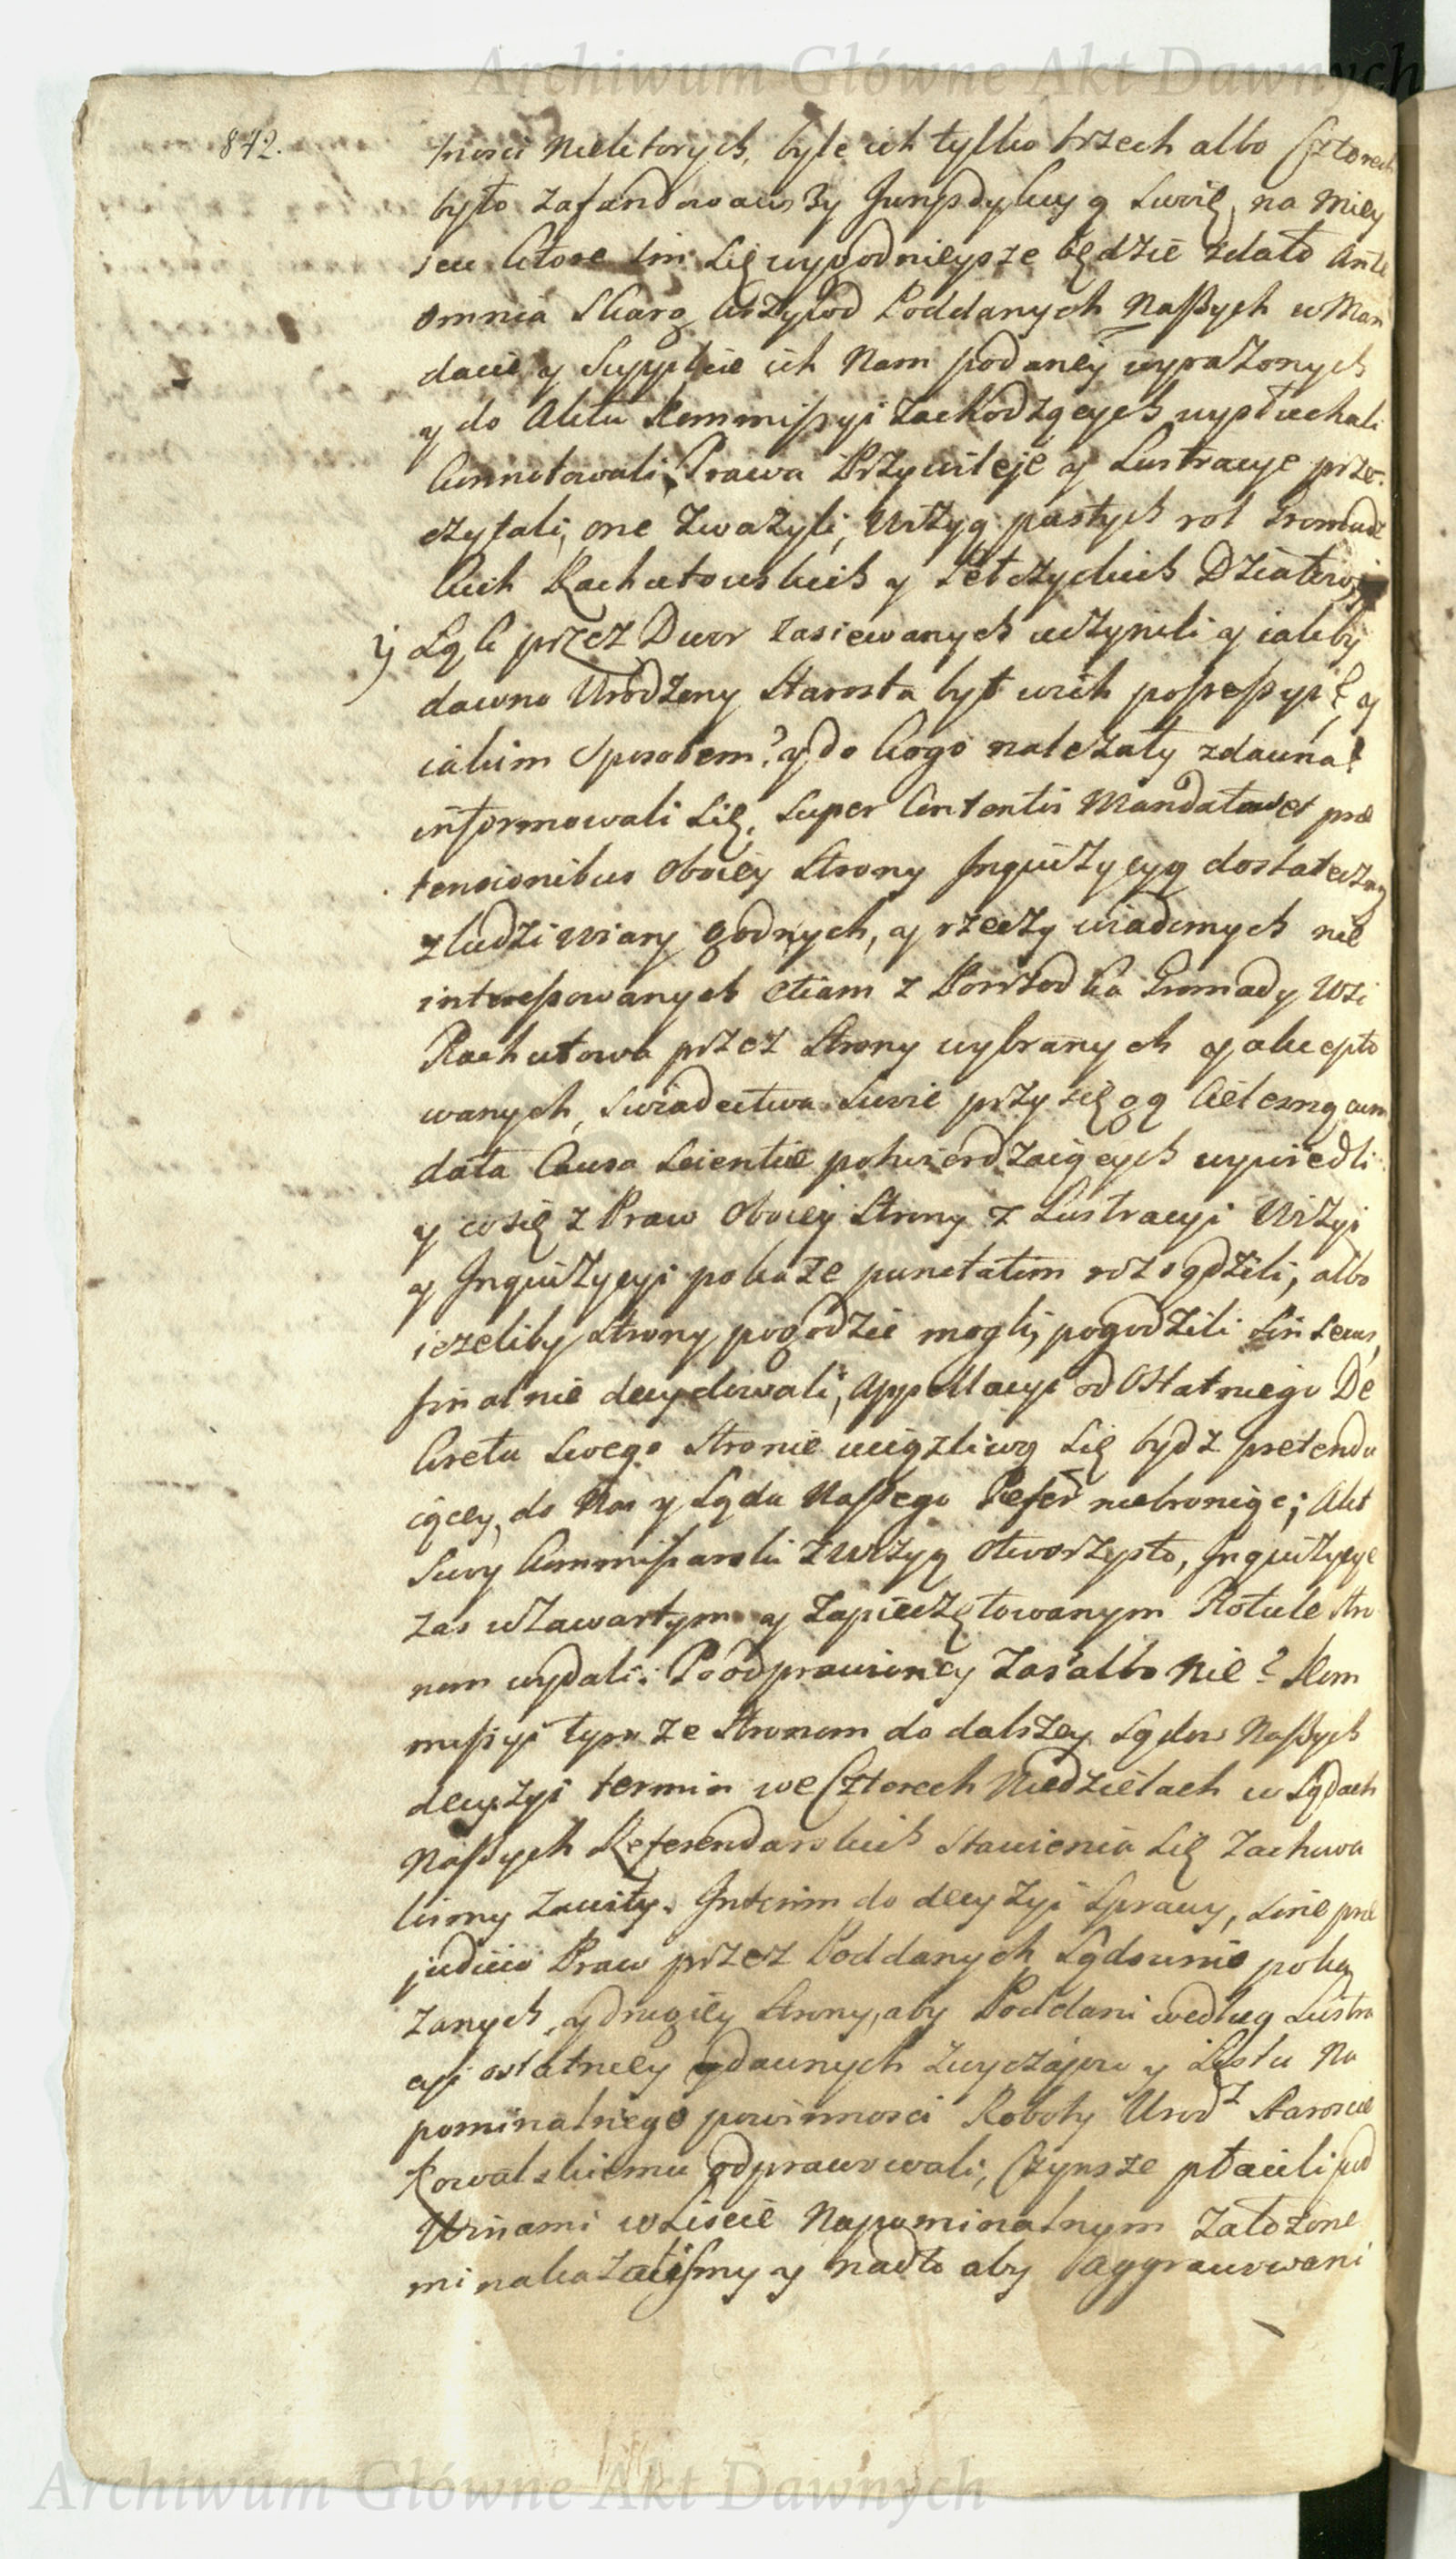 Archiwum Główne Akt Dawnych
842.
tnosci Niektorych, byle ich tylko trzech albo Czterech
było zafundowawszy Jurysdykcyą Swoię, na Miey
scu ktore im się wygodnieysze będzie zdało Ante
omnia Skarg krzywd Poddanych Naszych w Man
dacie y Supplice ich Nam podaney wyrażonych
y do Aktu Kommissyi zachodzących wysłuchali
konnotowali, Prawa Przywileje y Lustracye prze-
czytali, one zważyli, Wizyą pustych rol Gromadz
kich Rachutowskich y Dziatow
y Łąk przez Dwor zasiewanych uczynili y iakby
dawno Urodzony Starosta był w ich possessyi? y
iakim sposobem? y do kogo należały zdawna?
informowali się, Super Contentis Mandatu et præ
tensionibus oboiey Strony Inquizycyą dostateczną
z ludzi wiary godnych, y rzeczy wiadomych nie
interessowanych etiam z Pośrzodka Gromady Wsi
Rachutowa przez Strony wybranych y akcepto
wanych, Swiadectwa Swoie przysięgą Cielesną cum
data Causa Scientiæ potwierdzaiących wywiedli
y co się z Praw oboiey Strony z Lustracyi Wizyi
y Inquizycyi pokaże punctatim rozsądzili, albo
ieżeliby Strony pogodzić mogli, pogodzili sin secus,
finalnie decydowali, Appellacyi od Ostatniego De
kretu Swego Stronie uciążliwą się bydź pretendu
iącey, do Nas y Sądu Naszego Refer niebroniąc; Akt
Swoy Kommissarski z Wizyą otworzysto, Inquizycye
zas w zawartym y zapieczętowanym Rotule Stro
nom wydali. Po odprawioney zaś albo nie? Kom
missyi tymże Stronom do dalszey Sądow Naszych
decyzyi termin we Czterech Niedzielach w Sądach
Naszych Referendarskich Stawienia się zachowa
lismy zawity. Interim do decyzyi Sprawy, sine præ
judicio Praw przez Poddanych Sądownie poka
zanych, y drugiey Strony, aby Poddani według Lustra
cyi ostatniey y dawnych zwyczajow y Listu Na
pominalnego powinnosci Roboty Urodz Staroscie
Kowalskiemu odprawowali, Czynsze płacili pod
Winami w Liscie Napominalnym założone
mi nakazalismy y nadto aby aggrawowani
Archiwum Główne Akt Dawnych